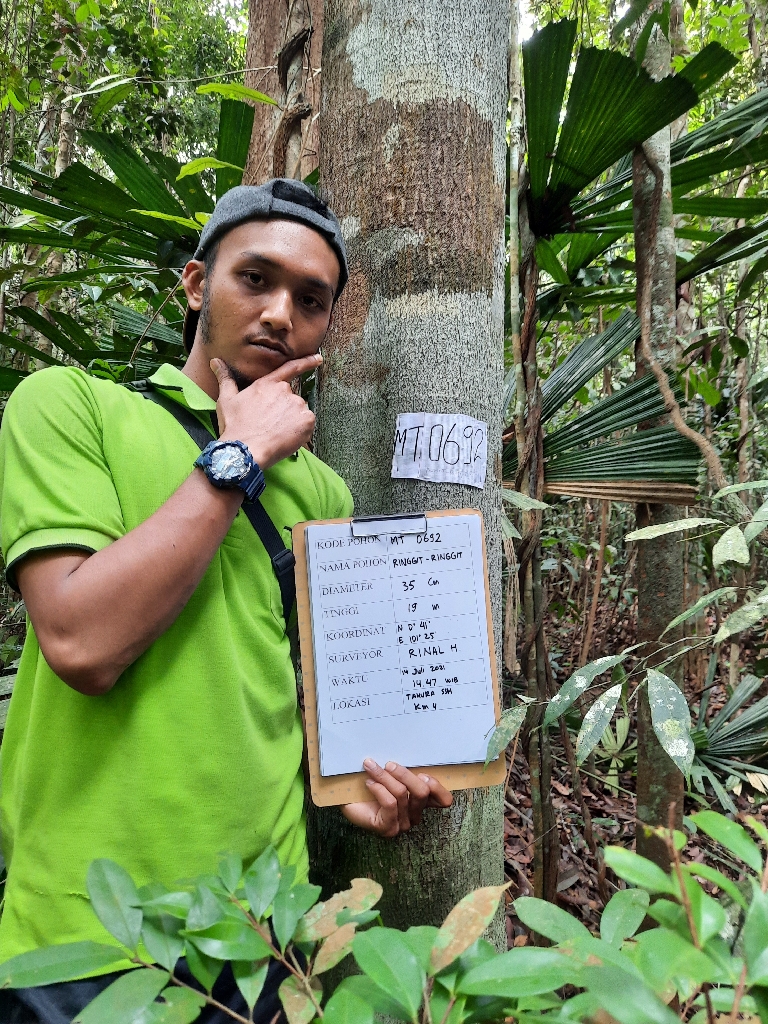 MT 0692
KODE POHON MT 0692
NAMA POHON RINGGIT-RINGGIT
DIAMETER 35 Cm
TINGGI 19 m
KOORDINAT N 0° 41'
E 101° 25
SURVEYOR RINAL H
WAKTU 14 Juli 2021
14.47 WIB
LOKASI TAHURA SSH
Km 4